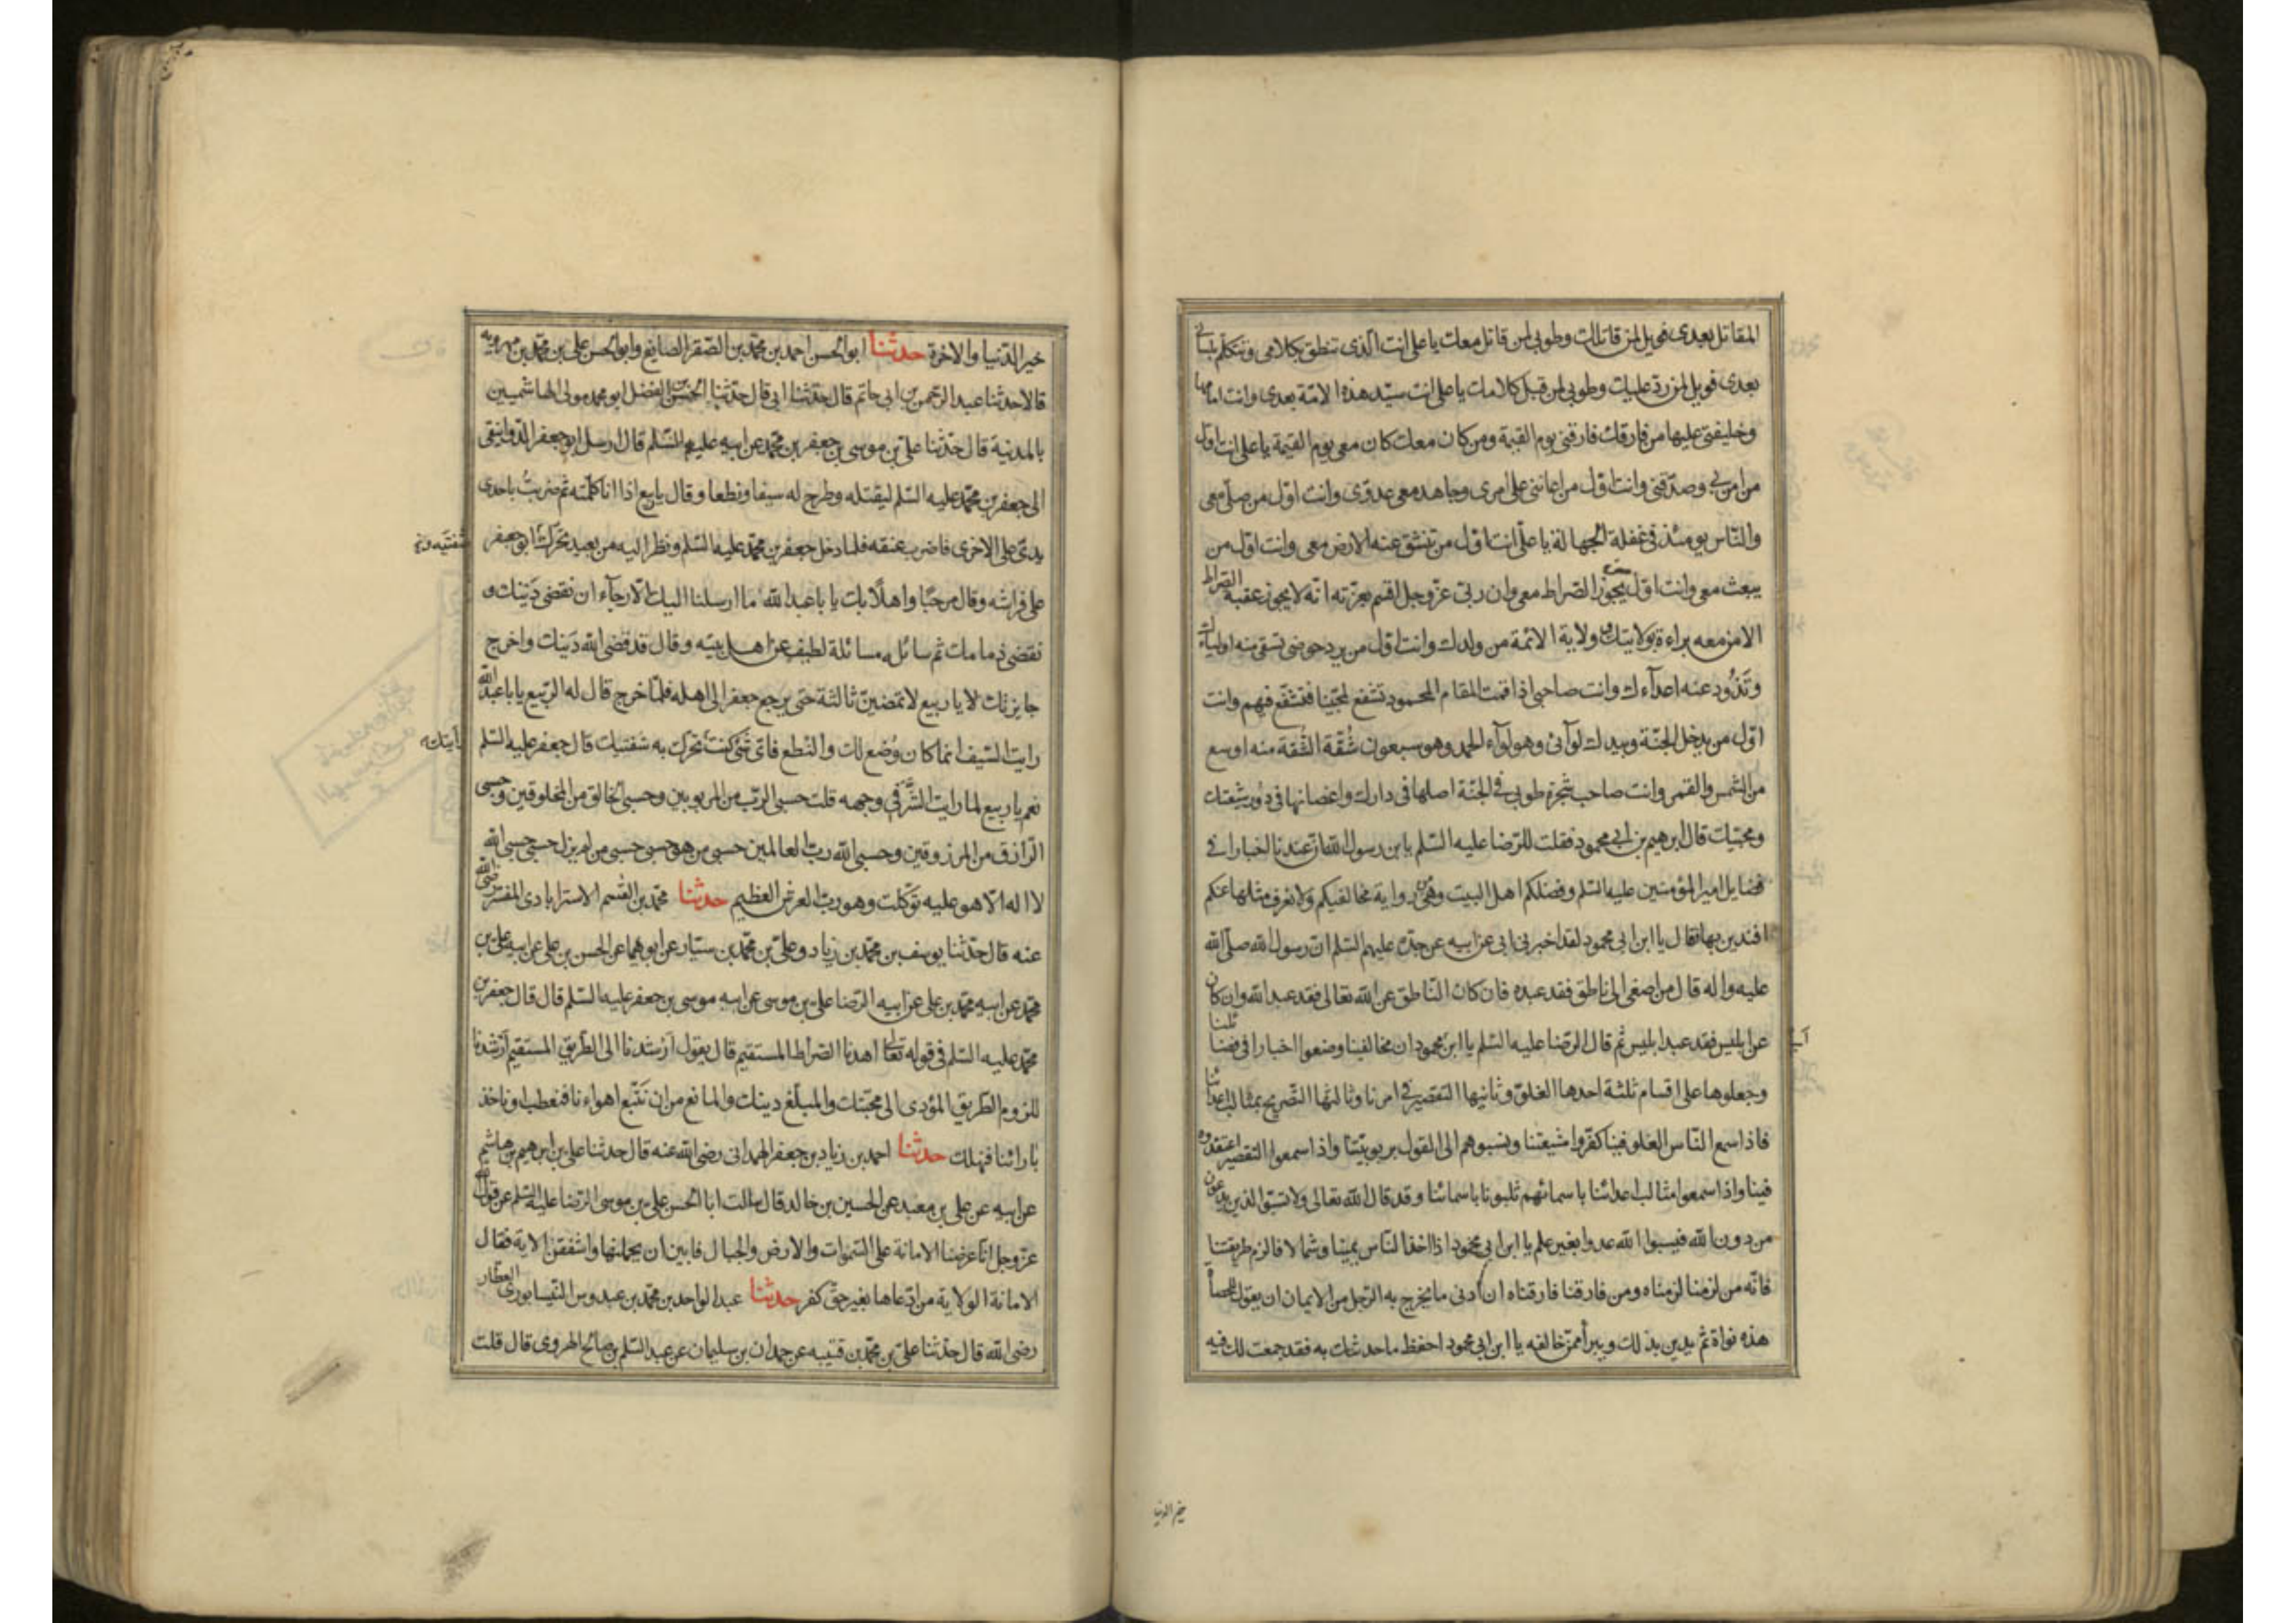 المقاتل بعدى فويل لمن قاتلك وطوبى لمن قاتل معك يا على انت الذى تنطق بكلامى وتتكلم بلسانى
بعدى فويل لمن رد عليك وطوبى لمن قبل كلامك يا على انت سيد هذه الامة بعدى وانت امامها
وخليفتى عليها من فارقك فارقنى يوم القيمة ومن كان معك كان معى يوم القيمة يا على انت اول
من امن بى وصدقنى وانت اول من اعاننى على امرى وجاهد معى عدوى وانت اول من صلى معى
والناس يومئذ فى غفلة الجهالة يا على انت اول من تنشق عنه الارض معى وانت اول من
يبعث معى وانت اول من يجوز الصراط معى وان ربى عز وجل اقسم بعزته انه لا يجوز عقبة الصراط
الا من معه براءة بولايتك وولاية الائمة من ولدك وانت اول من يرد حوضى تسقى منه اولياءك
وتذود عنه اعداءك وانت صاحبى اذا قمت المقام المحمود تشفع لمحبينا فتشفع فيهم وانت
اول من يدخل الجنة وبيدك لوائى وهو لواء الحمد وهو سبعون شقة الشقة منه اوسع
من الشمس والقمر وانت صاحب شجرة طوبى فى الجنة اصلها فى دارك واغصانها فى دور شيعتك
ومحبيك قال ابرهيم بن ابى محمود فقلت للرضا عليه السلم يا بن رسول الله ان عندنا اخبارا فى
فضايل امير المؤمنين عليه السلم وفضلكم اهل البيت وهى من رواية مخالفيكم ولا نعرف مثلها عنكم
افندين بها فقال يا ابن ابى محمود لقد اخبرنى ابى عن ابيه عن جده عليهم السلم ان رسول الله صلى الله
عليه واله قال من اصغى الى ناطق فقد عبده فان كان الناطق عن الله تعالى فقد عبد الله وان كان
عن ابليس فقد عبد ابليس ثم قال الرضا عليه السلم يا ابن محمود ان مخالفينا وضعوا اخبارا فى فضائلنا
ابى
وجعلوها على اقسام ثلثة احدها الغلو وثانيها التقصير فى امرنا وثالثها التصريح بمثالب اعدائنا
فاذا سمع الناس الغلو فينا كفروا شيعتنا ونسبوهم الى القول بربوبيتنا واذا سمعوا التقصير اعتقدوه
فينا واذا سمعوا مثالب اعدائنا باسمائهم ثلبونا باسمائنا وقد قال الله تعالى ولا تسبوا الذين يدعون
من دون الله فيسبوا الله عدوا بغير علم يا ابن ابى محمود اذا اخذ الناس يمينا وشمالا فالزم طريقتنا
فانه من لزمنا لزمناه ومن فارقنا فارقناه ان ادنى ما يخرج به الرجل من الايمان ان يقول للحصاة
هذه نواة ثم يدين بذلك ويبرأ ممن خالفه يا ابن ابى محمود احفظ ما حدثتك به فقد جمعت لك فيه
خير الدنيا
خير الدنيا والاخرة حدثنا ابو الحسن احمد بن محمد بن الصقر الصايغ وابو الحسن على بن محمد بن مهرويه
قالا حدثنا عبد الرحمن بن ابى حاتم قال حدثنا ابى قال حدثنا الحسن بن الفضل ابو محمد مولى الهاشميين
بالمدينة قال حدثنا على بن موسى بن جعفر بن محمد عن ابيه عليهم السلم قال ارسل ابو جعفر الدوانقى
الى جعفر بن محمد عليه السلم ليقتله وطرح له سيفا ونطعا وقال يا ربيع اذا انا كلمته ثم ضربت باحدى
يدى على الاخرى فاضرب عنقه فلما دخل جعفر بن محمد عليه السلم ونظر اليه من بعيد تحرك ابو جعفر
على فراشه وقال مرحبا واهلا بك يا با عبد الله ما ارسلنا اليك الا رجاء ان نقضى دينك و
نقضى ذمامك ثم سائله مسائلة لطيفه عن اهل بيته وقال قد قضى الله دينك واخرج
جايزتك لا يا ربيع لا تمضين ثالثة حتى يرجع جعفر الى اهله فلما خرج قال له الربيع يا با عبد الله
رايت السيف انما كان وضع لك والنطع فاى شئ كنت تحرك به شفتيك قال جعفر عليه السلم
نعم يا ربيع لما رايت الشر فى وجهه قلت حسبى الرب من المربوبين وحسبى الخالق من المخلوقين وحسبى
الرازق من المرزوقين وحسبى الله رب العالمين حسبى من هو حسبى حسبى من لم يزل حسبى حسبى الله
لا اله الا هو عليه توكلت وهو رب العرش العظيم حدثنا محمد بن القسم الاسترابادى المفسر رضى الله
عنه قال حدثنا يوسف بن محمد بن زياد وعلى بن محمد بن سيار عن ابويهما عن الحسن بن على عن ابيه على بن
محمد عن ابيه محمد بن على عن ابيه الرضا على بن موسى عن ابيه موسى بن جعفر عليه السلم قال قال جعفر بن
محمد عليه السلم فى قوله تعالى اهدنا الصراط المستقيم قال يقول ارشدنا الى الطريق المستقيم ارشدنا
للزوم الطريق المؤدى الى محبتك والمبلغ دينك والمانع من ان نتبع اهواءنا فنعطب او ناخذ
بارائنا فنهلك حدثنا احمد بن زياد بن جعفر الهمدانى رضى الله عنه قال حدثنا على بن ابرهيم بن هاشم
عن ابيه عن على بن معبد عن الحسين بن خالد قال سالت ابا الحسن على بن موسى الرضا عليه السلم عن قول الله
عز وجل انا عرضنا الامانة على السموات والارض والجبال فابين ان يحملنها واشفقن الاية فقال
الامانة الولاية من ادعاها بغير حق كفر حدثنا عبد الواحد بن محمد بن عبدوس النيسابورى العطار
رضى الله قال حدثنا على بن محمد بن قتيبه عن حمدان بن سليمان عن عبد السلم بن صالح الهروى قال قلت